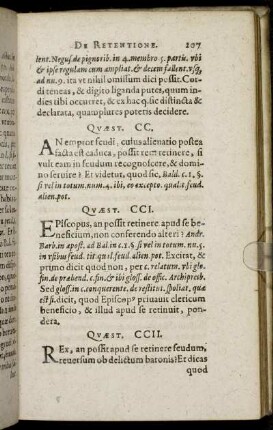 DE RETENTIONE. 107
lent. Negus. de pignorib. in 4. membro 5. partis. vbi
& ipse regulam cum ampliat. & decem fallent. vsq,
ad nu. 9. ita vt nihil omissum dici possit. Cordi
teneas, & digito liganda putes, quum in
dies tibi occurret, & ex hac q. sic distincta &
declarata, quamplures poteris decidere.
QVÆST. CC.
AN emptor feudi, cuius alienatio postea
facta est caduca, possit rem retinere, si
vult eam in feudum recognoscere, & domi
no seruire? Et videtur, quod sic, Bald. c. 1. §.
si vel in totum. num. 4. ibi, eo excepto. qualit. feud.
alien. pot.
QVÆST. CCI.
EPIscopus, an possit retinere apud se beneficium,
non conferendo alteri? Andr.
Barb. in apost. ad Bal. in c. 1. §. si vel in totum. nu. 5.
in vsibus feud. tit. qual. feud. alien. pot. Excitat, &
primo dicit quod non, per c. relatum. vbi glo.
fin. de præbend. c. fin. & ibi gloss. de offic. Archipresb.
Sed gloss. in c. conquerente. de restitut. spoliat. quæ
est si. dicit, quod Episcop9 priuauit clericum
beneficio, & illud apud se retinuit, pondera.
QVÆST. CCII.
REx, an possit apud se retinere feudum,
reuersum ob delictum baronis? Et dicas
quod